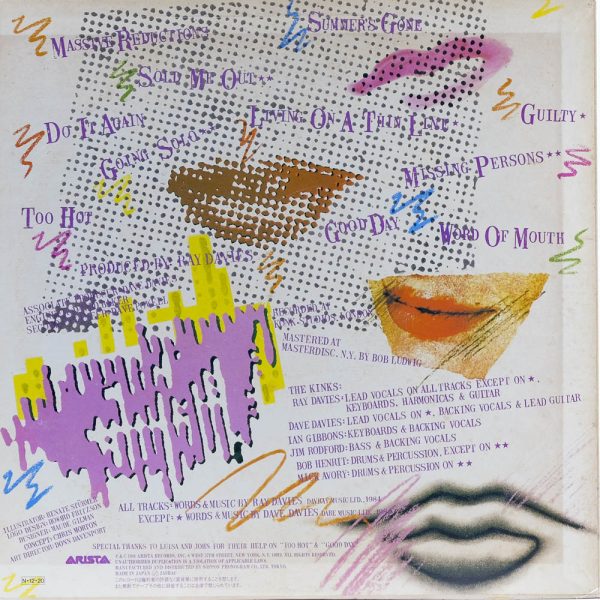 Massive Reductions
Summer's Gone
Sold Me Out★★
Do It Again
Going Solo★★
Living On A Thin Line★
Guilty★
Missing Persons★★
Too Hot
Good Day
Word Of Mouth
Produced by Ray Davies
Recorded at
Konk Studios, London
Mastered at
Masterdisc, N.Y. by Bob Ludwig
The Kinks:
Ray Davies: Lead vocals on all tracks except on ★,
Keyboards, Harmonicas & Guitar
Dave Davies: Lead vocals on ★, Backing vocals & Lead guitar
Ian Gibbons: Keyboards & Backing vocals
Jim Rodford: Bass & Backing vocals
Bob Henrit: Drums & Percussion, except on ★★
Mick Avory: Drums & Percussion on ★★
All tracks: Words & Music by Ray Davies Davray Music Ltd., 1984
Except: ★ Words & Music by Dave Davies
Special thanks to Luisa and John for their help on "Too Hot" & "Good Day"
Illustrator: Renate Stürmer
Logo Design: Howard Fritzson
Designer: Maude Gilman
Concept: Chris Morton
Art Direction: Donn Davenport
ARISTA
Unauthorized duplication is a violation of applicable laws.
Manufactured and distributed by Nippon Phonogram Co., Ltd. Tokyo,
Made in Japan
N·12·20